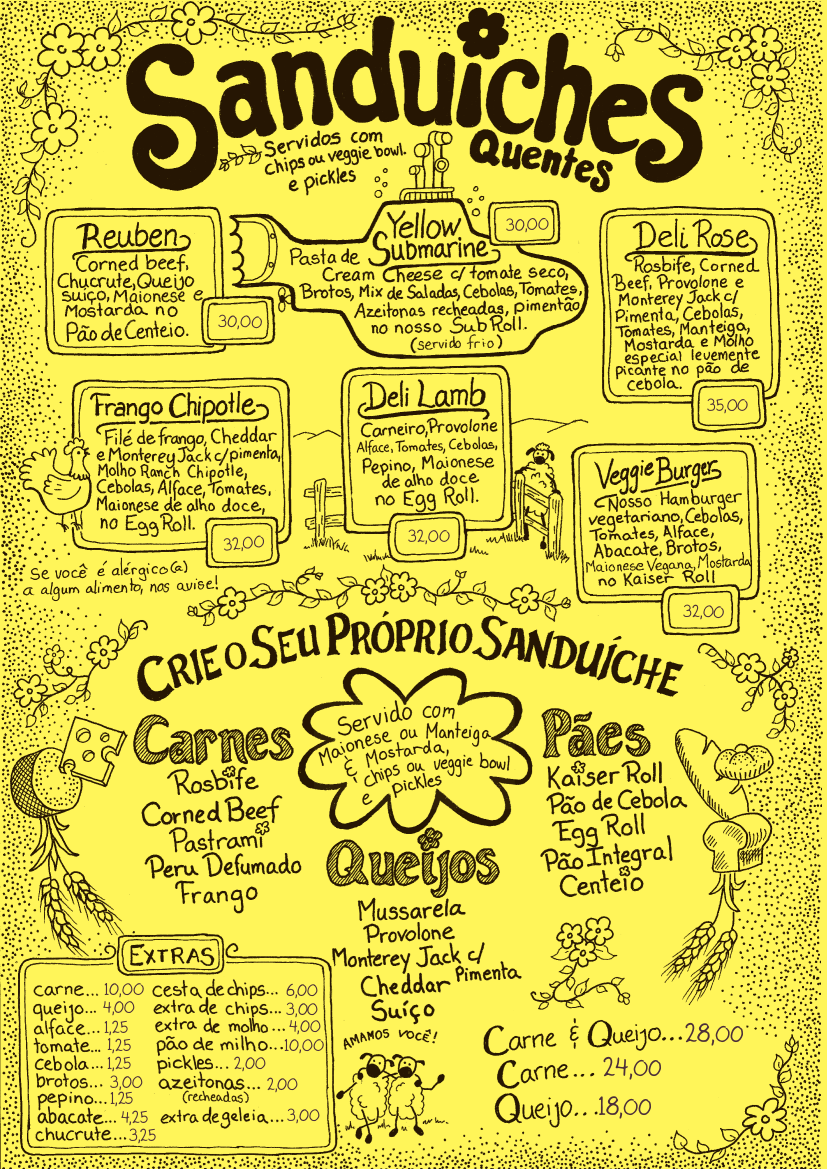 Sanduíches
Quentes
Servidos com
chips ou veggie bowl.
e pickles
Reuben
Corned beef,
Chucrute, Queijo
suíço, Maionese e
Mostarda no
Pão de Centeio.
30,00
Yellow
Submarine
30,00
Pasta de
Cream Cheese c/ tomate seco,
Brotos, Mix de Saladas, Cebolas, Tomates,
Azeitonas recheadas, pimentão
no nosso Sub Roll.
(servido frio)
Deli Rose
Rosbife, Corned
Beef, Provolone e
Monterey Jack c/
Pimenta, Cebolas,
Tomates, Manteiga,
Mostarda e Molho
especial levemente
picante no pão de
cebola.
35,00
Frango Chipotle
Filé de frango, Cheddar
e Monterey Jack c/pimenta,
Molho Ranch Chipotle,
Cebolas, Alface, Tomates,
Maionese de alho doce,
no Egg Roll.
32,00
Deli Lamb
Carneiro, Provolone
Alface, Tomates, Cebolas,
Pepino, Maionese
de alho doce
no Egg Roll.
32,00
Veggie Burger
Nosso Hamburger
vegetariano, Cebolas,
Tomates, Alface,
Abacate, Brotos,
Maionese Vegana, Mostarda
no Kaiser Roll
32,00
Se você é alérgico(a)
a algum alimento, nos avise!
CRIE O SEU PRÓPRIO SANDUÍCHE
Servido com
Maionese ou Manteiga
& Mostarda,
chips ou veggie bowl
e pickles
Carnes
Rosbife
Corned Beef
Pastrami
Peru Defumado
Frango
Queijos
Mussarela
Provolone
Monterey Jack c/
Pimenta
Cheddar
Suíço
Pães
Kaiser Roll
Pão de Cebola
Egg Roll
Pão Integral
Centeio
EXTRAS
carne... 10,00
queijo... 4,00
alface... 1,25
tomate... 1,25
cebola... 1,25
brotos... 3,00
pepino... 1,25
abacate... 4,25
chucrute... 3,25
cesta de chips... 6,00
extra de chips... 3,00
extra de molho... 4,00
pão de milho...10,00
pickles... 2,00
azeitonas... 2,00
(recheadas)
extra de geleia...3,00
AMAMOS VOCÊ!
Carne & Queijo...28,00
Carne... 24,00
Queijo...18,00